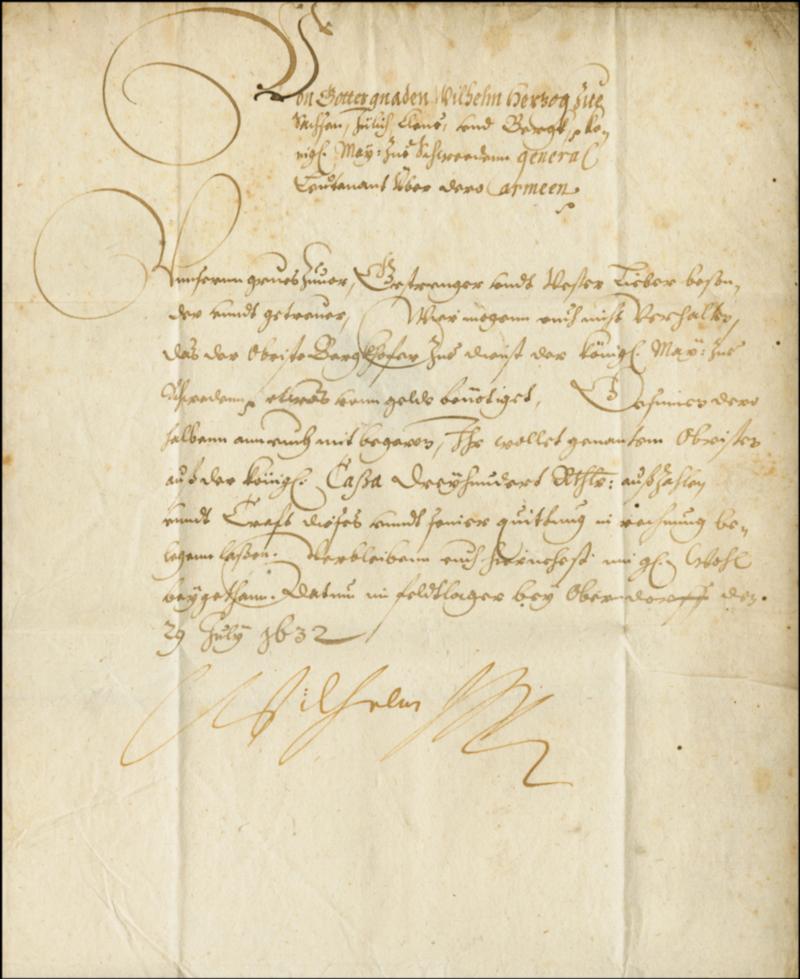 Von Gottes gnaden Wilhelm Hertzog zue
Sachsen, Jülich, Cleve, undt Bergk, kö-
nigl. May: zue Schweden general
Leutenant über dero armeen.
Unsern grues zuvor, Gestrenger undt Vester Lieber beson-
der undt getreuer, Wir mögen euch nicht Verhalten,
das der Obriste zue dienst der Königl. May: zue
Schweden, etwas ann gelde benötiget, Gesinnen dero
halbenn ann euch mit begeren, Ihr wollet genantem Obristen
aus der königl. Cassa Dreyhundert Rthlr: außzahlen
undt Craft dieses undt seiner quittung in rechnung be-
legenn laßen. Verbleibenn euch hiernehst mit gl. Wohl
beygethann. Datum im feldtlager bey Oberndorff den
29 July 1632
Wilhelm